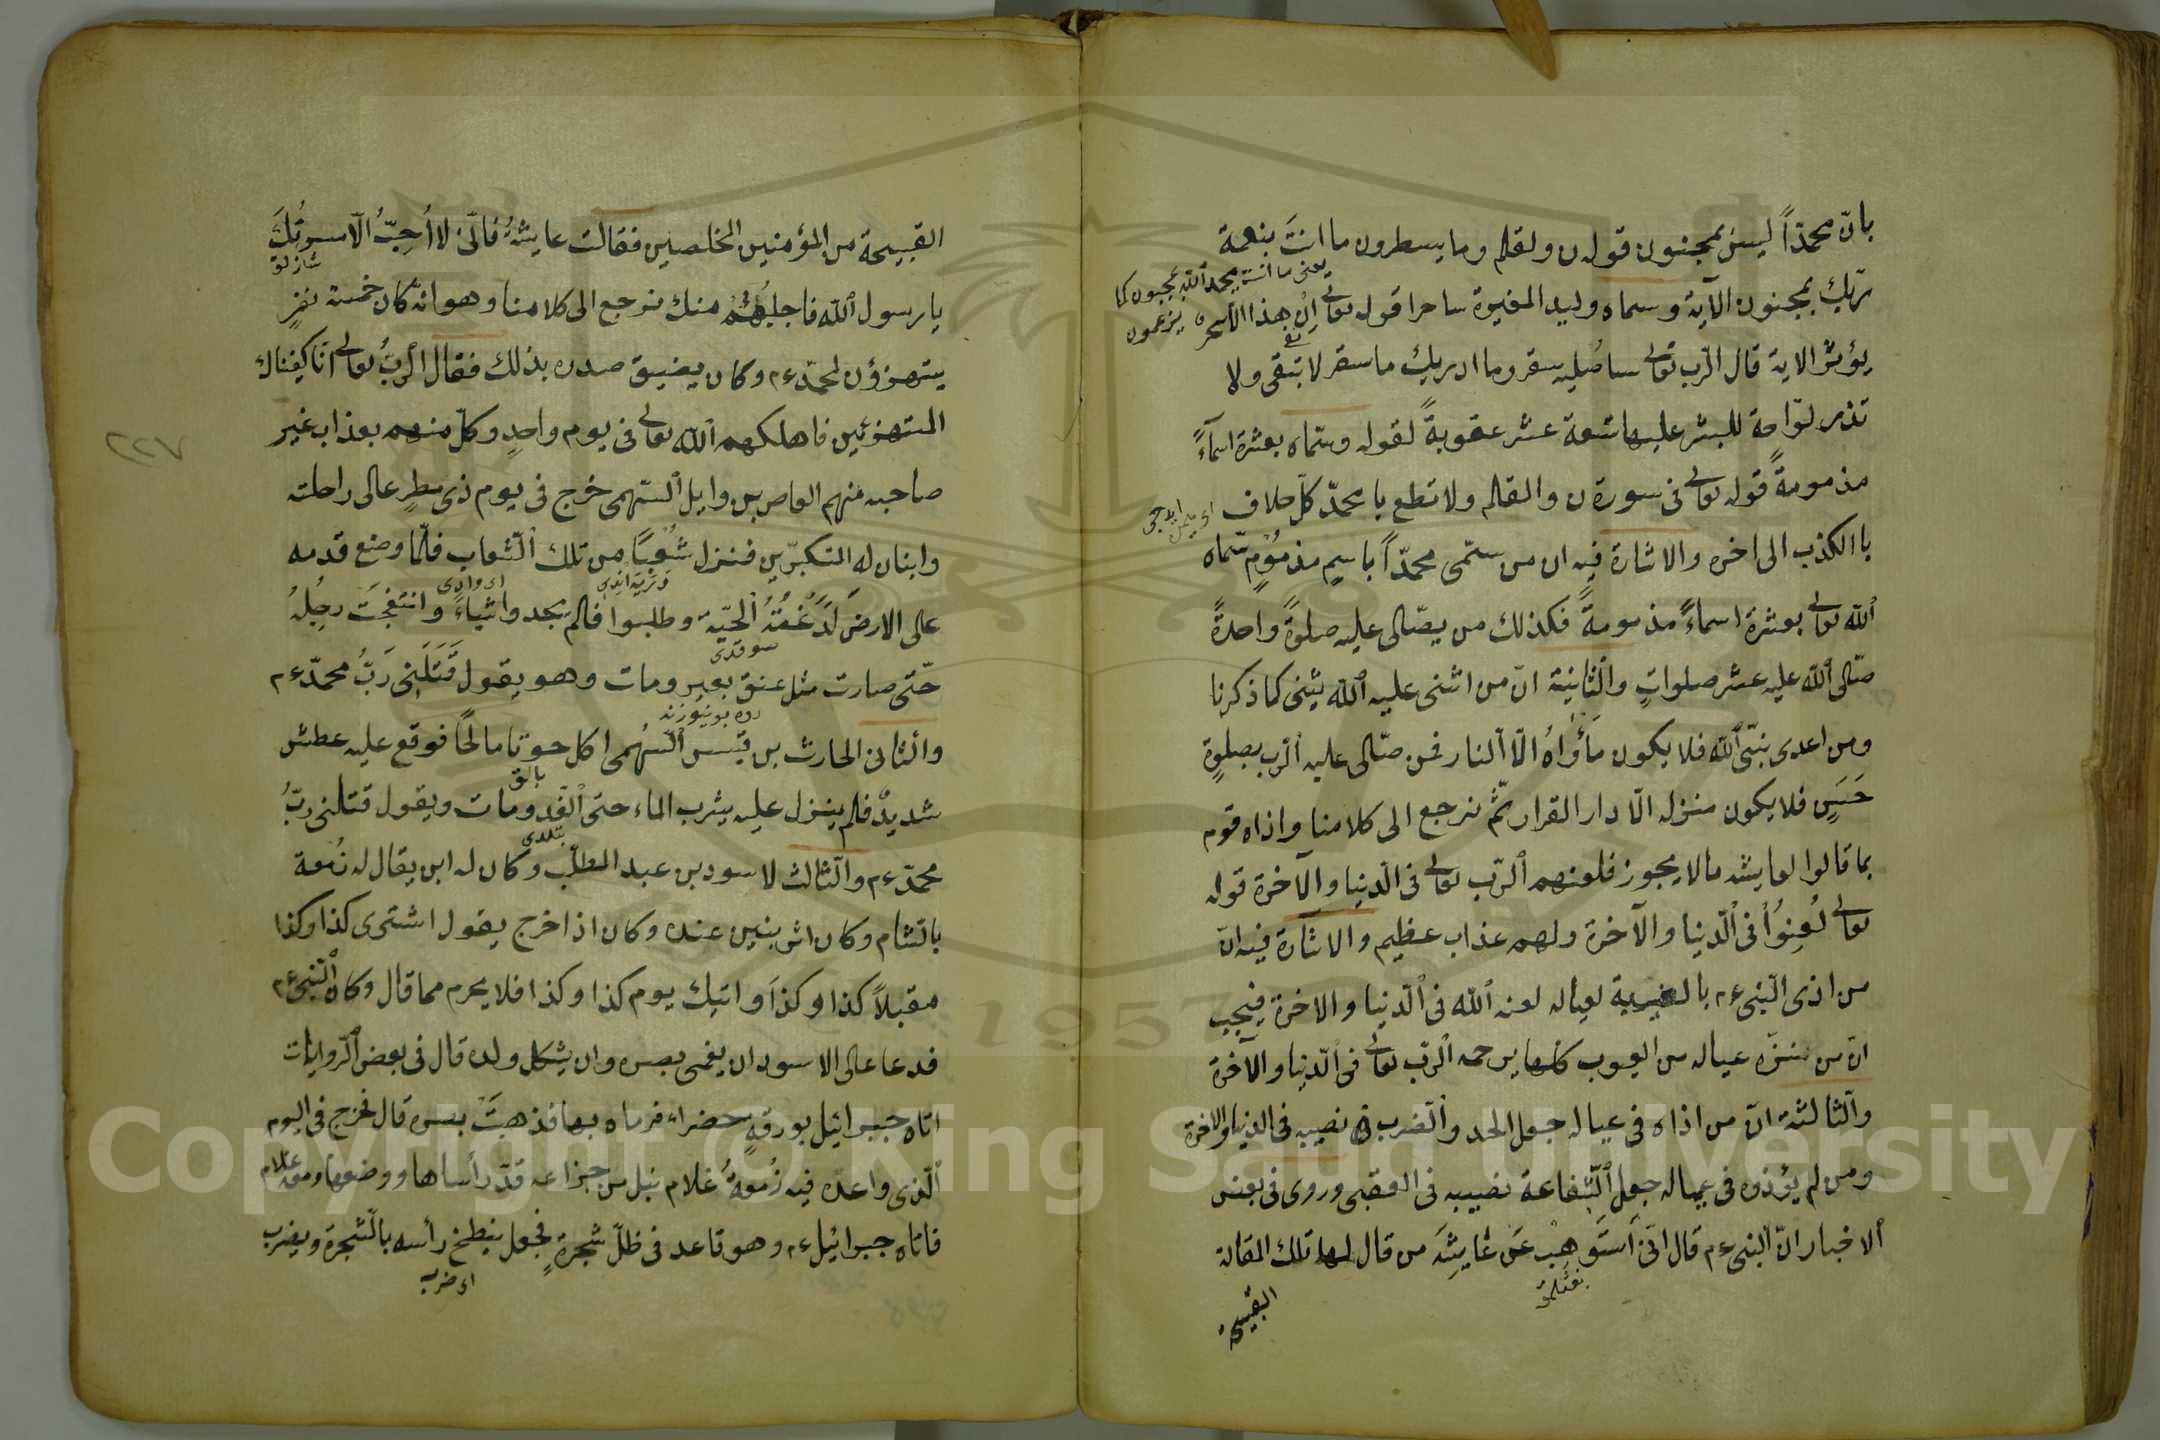 بانّ محمدًا ليس بمجنون قوله ن والقلم وما يسطرون ما انتَ بنعمة
ربّك بمجنون الآية وسماه وليد المغيرة ساحرا قوله تعالى اِن هذا الا سحر
يعنى ما انت يا محمد بمجنون كما
يزعمون
يؤثر الاية قال الرّب تعالى ساُصليه سقر وما ادريك ما سقر لا تبقى ولا
تذر لوّاحة للبشر عليها تسعة عشر عقوبةً لقوله وسمّاه بعشرة اسماءً
مذمومةً قوله تعالى فى سورة ن والقلم ولا تطع يا محمدّ كلّ حلاف
باالكذب الى اخره والاشارة فيه ان من سمّى محمدّاً باسمٍ مذمُوْمٍ سمّاه
الله تعالى بعشرة اسماءً مذمومةً فكذلك من يصّلى عليه صلوةً واحدةً
صّلى الله عليه عشر صلواتٍ والثّانية انّ من اثنى عليه الله يثنى كما ذكرنا
ومن اعدى بنبّى الله فلا يكون مَأْوَاهُ الّا النار فمن صّلى عليه الرّب بصلوةٍ
حَسَنٍ فلا يكون منزله الّا دار القرار ثمّ نرجع الى كلامنا واذاه قومه
بما قالوا لعايشه ما لا يجوز فلعنهم الرّب تعالى فى الدّنيا والآخرة قوله
تعالى لُعِنُوْا فى الدّنيا والآخرة ولهم عذاب عظيم والاشارة فيه انّ
من اذى النّبىء م بالغيبة لعياله لعنه الله فى الدّنيا والاخرة فيجب
انّ من ننزّه عياله من العيوب كلها يرحمه الرّب تعالى فى الدّنيا والآخرة
والثّالثة انّ من اذاه فى عياله جعل الحد والضّرب نصيبه فى الدنيا والاخرة
ومن لم يؤذه فى عياله جعل الشّفاعة نصيبه فى العقبى وروى فى بعض
الاخبار انّ النبىء م قال انّى اَستَوهِبْ عَن عايشةَ من قال لها تلك المقالة
القبيحة
القبيحة من المؤمنين المخلصين فقالت عايشةُ فانّى لا اُحِبُّ الّا سروُرَكَ
يا رسول الله فاجلبهُم منك نرجع الى كلامنا وهو انهّ كان خمسة نفرٍ
يتهزؤن لمحمدّء م وكان يضيق صدره بذلك فقال الرّبُ تعالى انّا كفيناك
المتهزئين فاهلكهم الله تعالى فى يوم واحدٍ وكلّ منهم بعذاب غير
٢٢٧
صاحبه منهم العاص بن وايل السّهمى خرج فى يوم ذى مطرٍ على راحلته
وابنان له المتكبّرين فنزل شُعبًا من تلك الشّعاب فلمّا وضع قدمه
على الارض لَدَغَتْهُ الحيّة وطلبوا فالم يجدوا شياءً وانتفجَت رجِلُهُ
حتّى صارت مثل عنق بعير ومات وهو يقول قَتَلَنِى رَبُّ محمدّء م
والثّانى الحارث بن قيس السّهُمى اكل حوتا مالحًا فوقع عليه عطش
شديدٌ فلم ينزل عليه يشرب الماء حتى انقد ومات ويقول قتلنى ربُّ
محمدّء م والثّالث لاسود بن عبد المطلّب وكان له ابن يقال له زُمعة
بالشّام وكان اثر بنين عنده وكان اذا خرج يقول اشترى كذا وكذا
مقبلاً كذا وكذا واتيك يوم كذا وكذا فلا يحرم مما قال وكان النّبىء م
فدعا على الاسود ان يغمى بصره وان يثكل ولده قال فى بعض الرّوايات
اتاه جبرائيل بورقةٍ خضراء فرماه بها فذهبَتْ بصره قال فخرج فى اليوم
الّذى واعدّه فيه زُمعةُ غلام
فاتاه جبرائيلء م وهو قاعد فى ظلّ شجرةٍ فجعل ينطح رأسه بالشّجرة ويضرب
اى ضرب